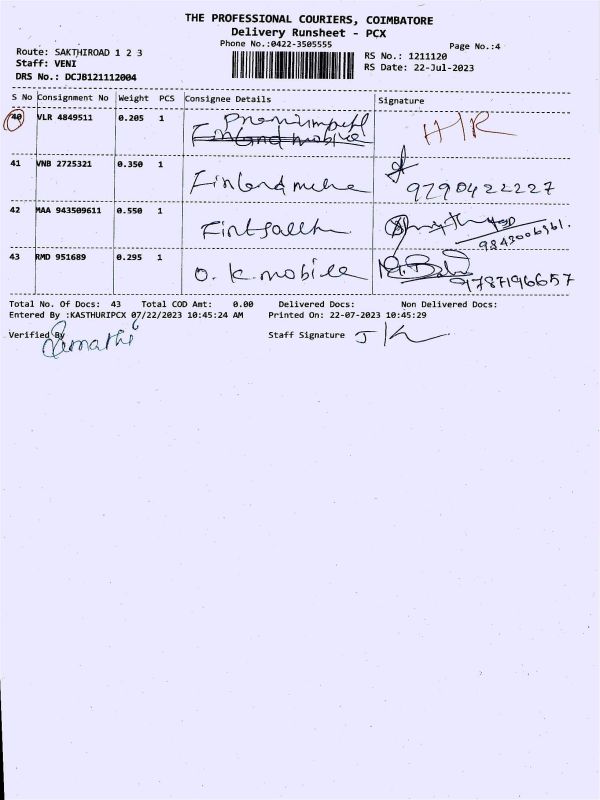 THE PROFESSIONAL COURIERS, COIMBATORE
Delivery Runsheet - PCX
Phone No.:0422-3505555
Page No.:4
Route: SAKTHIROAD 1 2 3
RS No.: 1211120
Staff: VENI
RS Date: 22-Jul-2023
DRS No.: DCJB121112004
S No Consignment No Weight PCS Consignee Details Signature
40 VLR 4849511 0.205 1 H/R
41 VNB 2725321 0.350 1 Finland 9790422227
42 MAA 943509611 0.550 1
43 RMD 951689 0.295 1 O.K.mobile 9787196657
Total No. Of Docs: 43 Total COD Amt: 0.00 Delivered Docs: Non Delivered Docs:
Entered By :KASTHURIPCX 07/22/2023 10:45:24 AM Printed On: 22-07-2023 10:45:29
Verified By Staff Signature